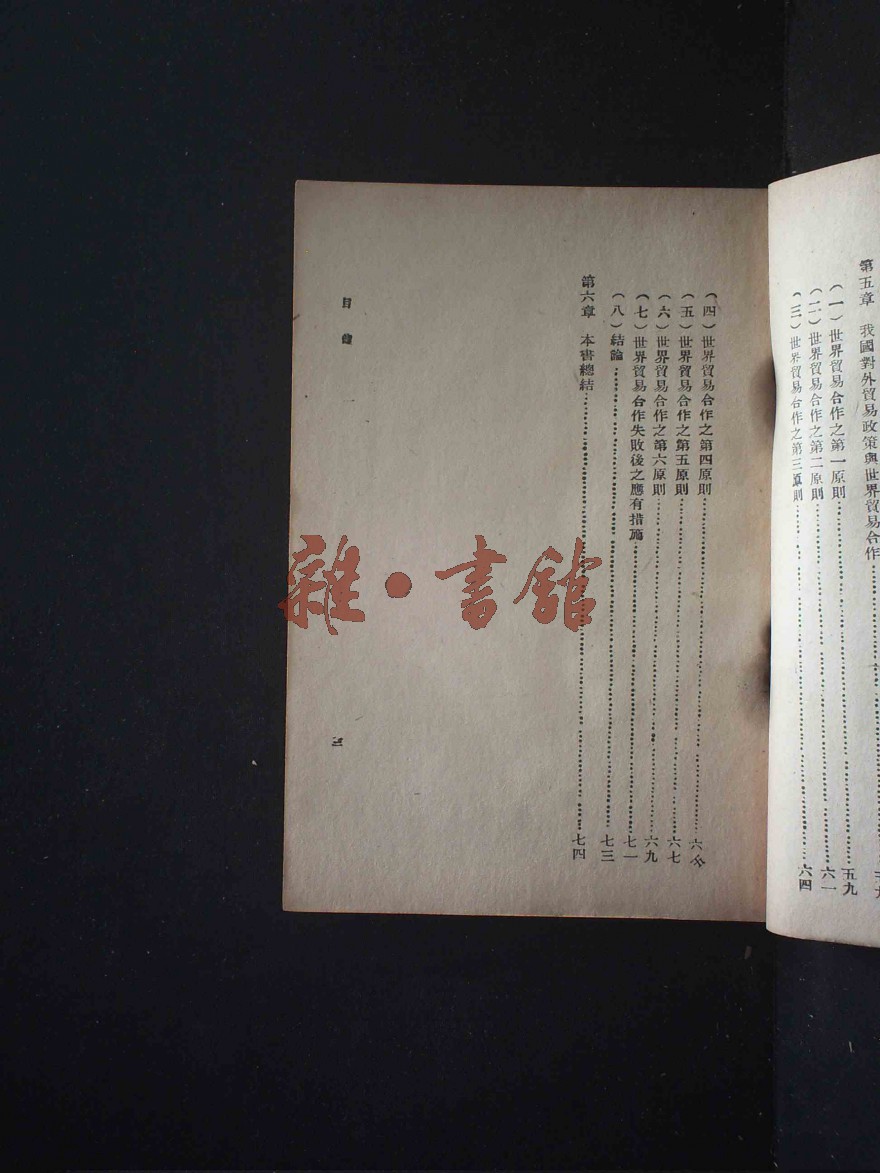 第五章　我國對外貿易政策與世界貿易合作
(一)世界貿易合作之第一原則……五九
(二)世界貿易合作之第二原則……六一
(三)世界貿易合作之第三原則……六四
(四)世界貿易合作之第四原則……六
(五)世界貿易合作之第五原則……六七
(六)世界貿易合作之第六原則……六九
(七)世界貿易合作失敗後之應有措施……七一
(八)結論……七三
第六章　本書總結……七四
目錄
三
雜·書館